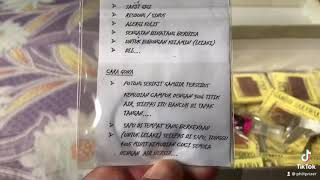 SAKIT GIGI
RESDUNG / SINUS
ALERGI KULIT
SENGATAN BINATANG BERBISA
UNTUK HUBUNGAN KELAMIN (LELAKI)
DLL...
CARA GUNA
POTONG SEDIKIT GAMBIR TERSEBUT
KEMUDIAN CAMPUR DENGAN TITIK
AIR, SELEPAS ITU BANCUH DI TAPAK
TANGAN...
SAPU DI TEMPAT YANG BERKENAAN
(UNTUK LELAKI) SELEPAS DI SAPU, TUNGGU
MINIT KEMUDIAN CUCI SEMULA
DENGAN AIR BERSIH...
TikTok
@philipviser